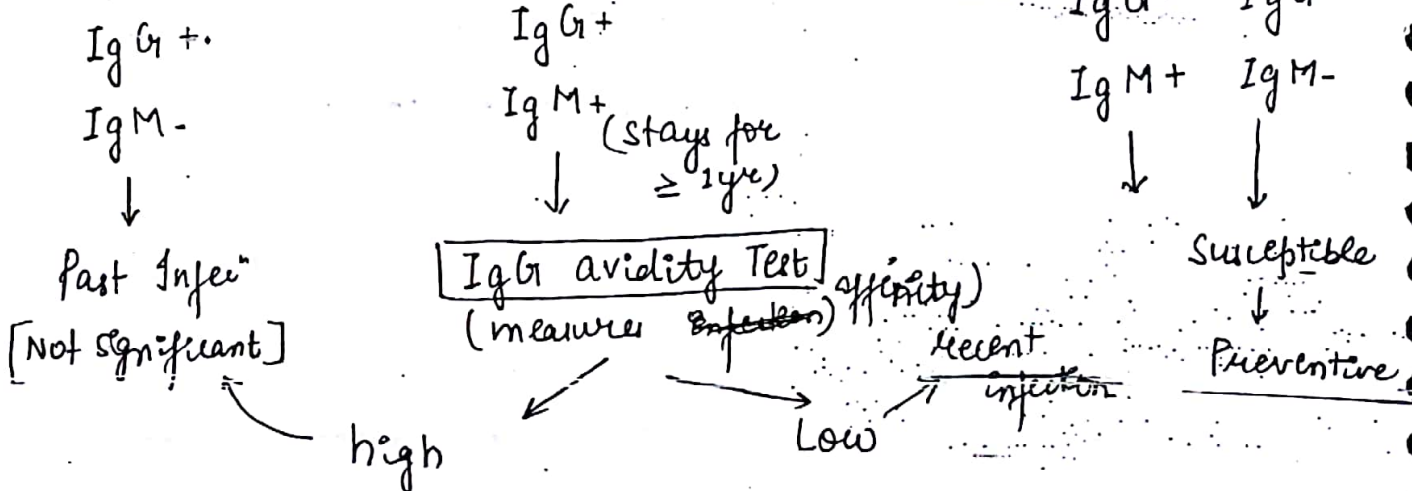 IgG +.
IgM -
Past Infecⁿ
[Not Significant]
IgG+
IgM+ (stays for
≥ 1yr)
IgG avidity Test
(measures affinity)
high
Low
IgM+ IgM-
recent
infection
Susceptible
Preventive